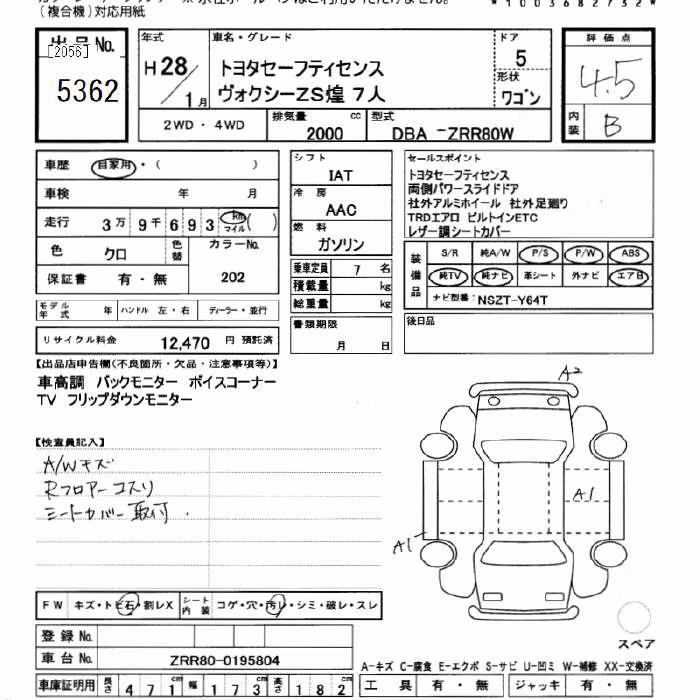 (複合機)対応用紙
*1003682752*
出品No.
[2056]
5362
年式
H28/1月
車名・グレード
トヨタセーフティセンス
ヴォクシーZS煌 7人
ドア
5
形状
ワゴン
評価点
4.5
内装
B
2WD・4WD
排気量
2000 cc
型式
DBA -ZRR80W
車歴 自家用・( )
車検 年 月
走行 3万9千693 km マイル ( )
色 クロ
色替
カラーNo.
202
保証書 有・無
モデル年式 年
ハンドル 左・右
ディーラー・並行
リサイクル料金 12,470 円 預託済
シフト
IAT
冷房
AAC
燃料
ガソリン
乗車定員 7 名
積載量 kg
総重量 kg
書類期限
月 日
セールスポイント
トヨタセーフティセンス
両側パワースライドドア
社外アルミホイール 社外足廻り
TRDエアロ ビルトインETC
レザー調シートカバー
装備品
S/R 純A/W P/S P/W ABS
純TV 純ナビ 革シート 外ナビ エアB
ナビ型番: NSZT-Y64T
後日品
【出品店申告欄(不良箇所・欠品・注意事項等)】
車高調 バックモニター ボイスコーナー
TV フリップダウンモニター
【検査員記入】
A/Wキズ
Rフロアーコスリ
シートカバー取付.
A2
A1
A1
FW キズ・トビ石・割レX
シート内装 コゲ・穴・汚レ・シミ・破レ・スレ
スペア
登録No.
車台No. ZRR80-0195804
A-キズ C-腐食 E-エクボ S-サビ U-凹ミ W-補修 XX-交換済
車庫証明用 長さ 471cm 幅 173cm 高さ 182cm
工具 有・無 ジャッキ 有・無